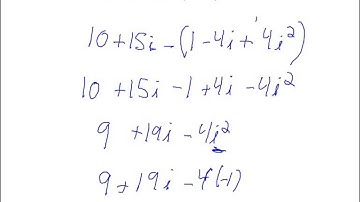 10+15i-(1-4i+4i²)
10+15i-1+4i-4i²
9 +19i-4i²
9+19i-4(-1)